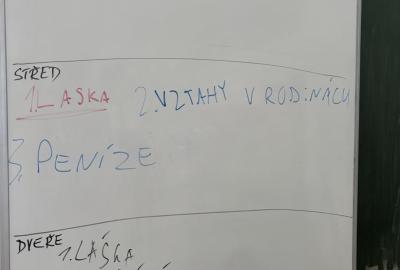 STŘED
1. LASKA 2. VZTAHY V RODINÁCH
3. PENÍZE
DVEŘE
1. LÁSKA